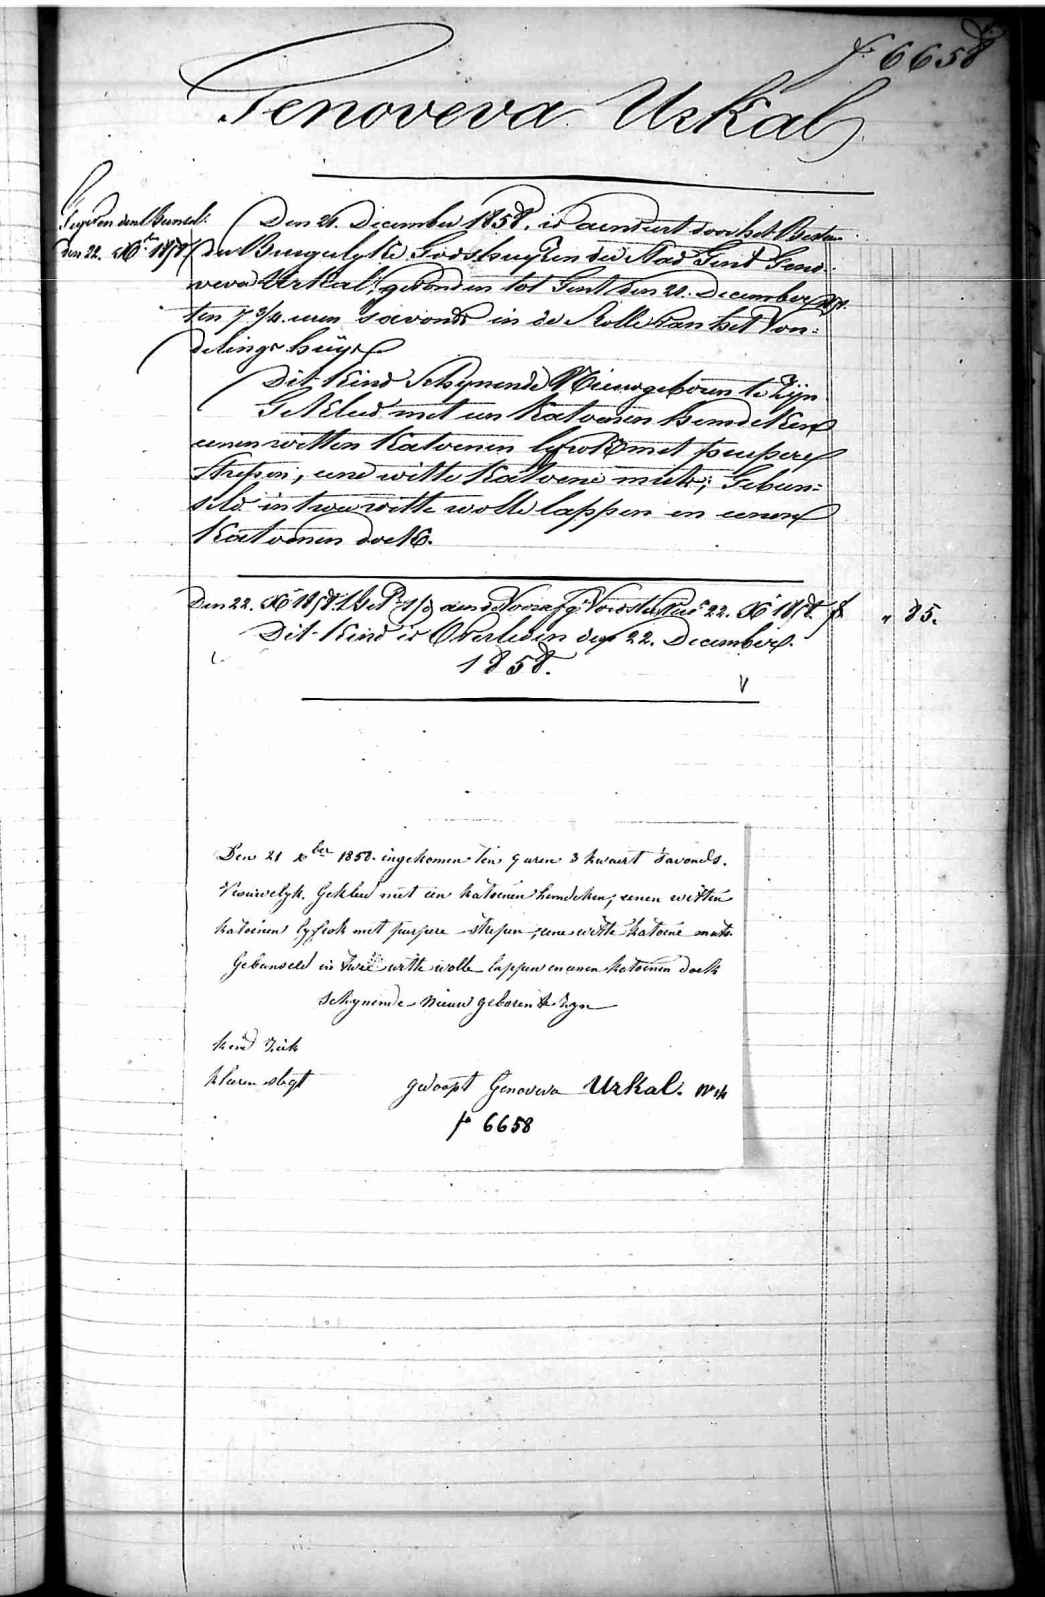 fo 6658
Genoveva Urkal
Den 21. December 1858, is aenveert door het Bestier
der Burgelyke Godshuyzen der Stad Gent Geno-
veva Urkal, gevonden tot Gent den 21. December
ten 7 3/4 uren s'avonds in de Rolle van het Von-
delings huys
Dit Kind Schynende Nieuwgeboren te zyn
Gekleed met een Katoenen hemdeken
eenen witten Katoenen lyfrok met purpere
strepen, eene witte Katoene muts; Gebun-
seld in twee witte wolle lappen en eenen
Katoenen doek.
Den 22. Xbr 1858. 22. Xbr 1858. f " 85.
Dit Kind is Overleden den 22. December
1858.
Den 21 xber 1858 ingekomen ten 7 uren 3 kwaert savonds.
Vrouwelyk. Gekleed met een katoenen hemdeken, eenen witten
katoenen lyfrok met purpere strepen, eene witte katoene muts
Gebunseld in twee witte wolle lappen en eenen katoenen doek
schynende nieuw geboren te zyn
kind ziek
kleeren slegt gedoopt Genoveva Urkal.
fo 6658